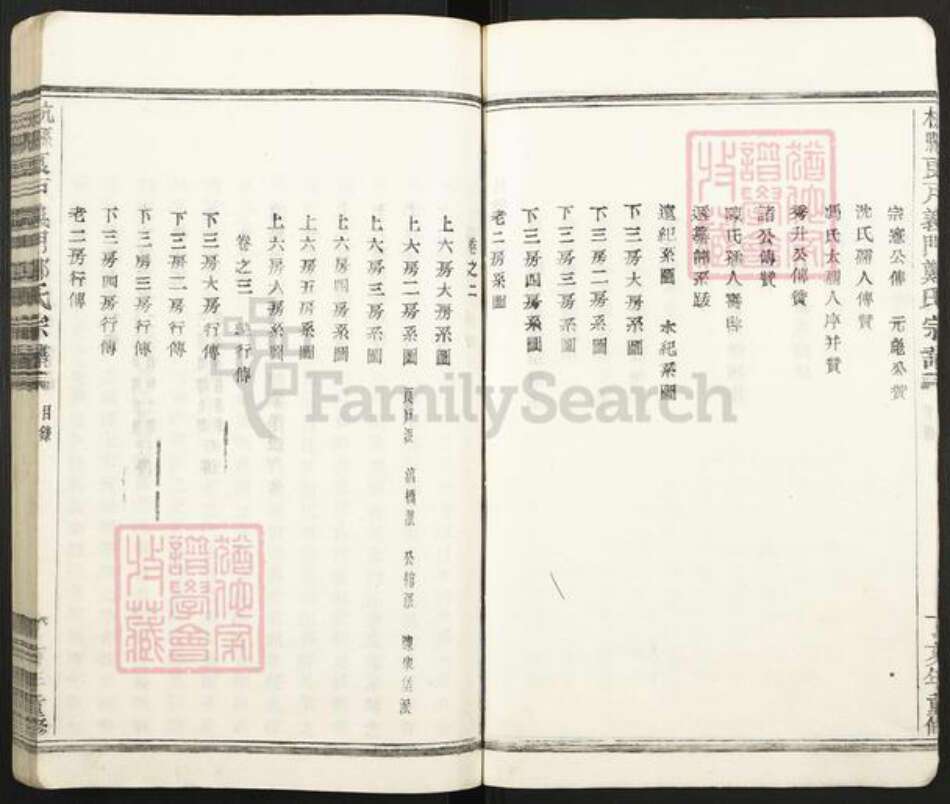 宗憲公傳 元龜公贊
沈氏孺人傳贊
馮氏太孺人序并贊
秀升公傳贊
諸公傳贊
氏孺人壽
遷系跋
遠紀系圖 永紀系圖
下三房大房系圖
下三房二房系圖
下三房三房系圖
下三房四房系圖
老二房系圖
卷之二
上六房大房系圖
上六房二房系圖 派 橋派 公館派 派
上六房三房系圖
上六房四房系圖
上六房五房系圖
上六房六房系圖
卷之三 行傳
下三房大房行傳
下三房二房行傳
下三房三房行傳
下三房四房行傳
老二房行傳
杭縣義門鄭氏宗譜
目錄
亥年重修
猶他家譜學會收藏
猶他家譜學會收藏
FamilySearch